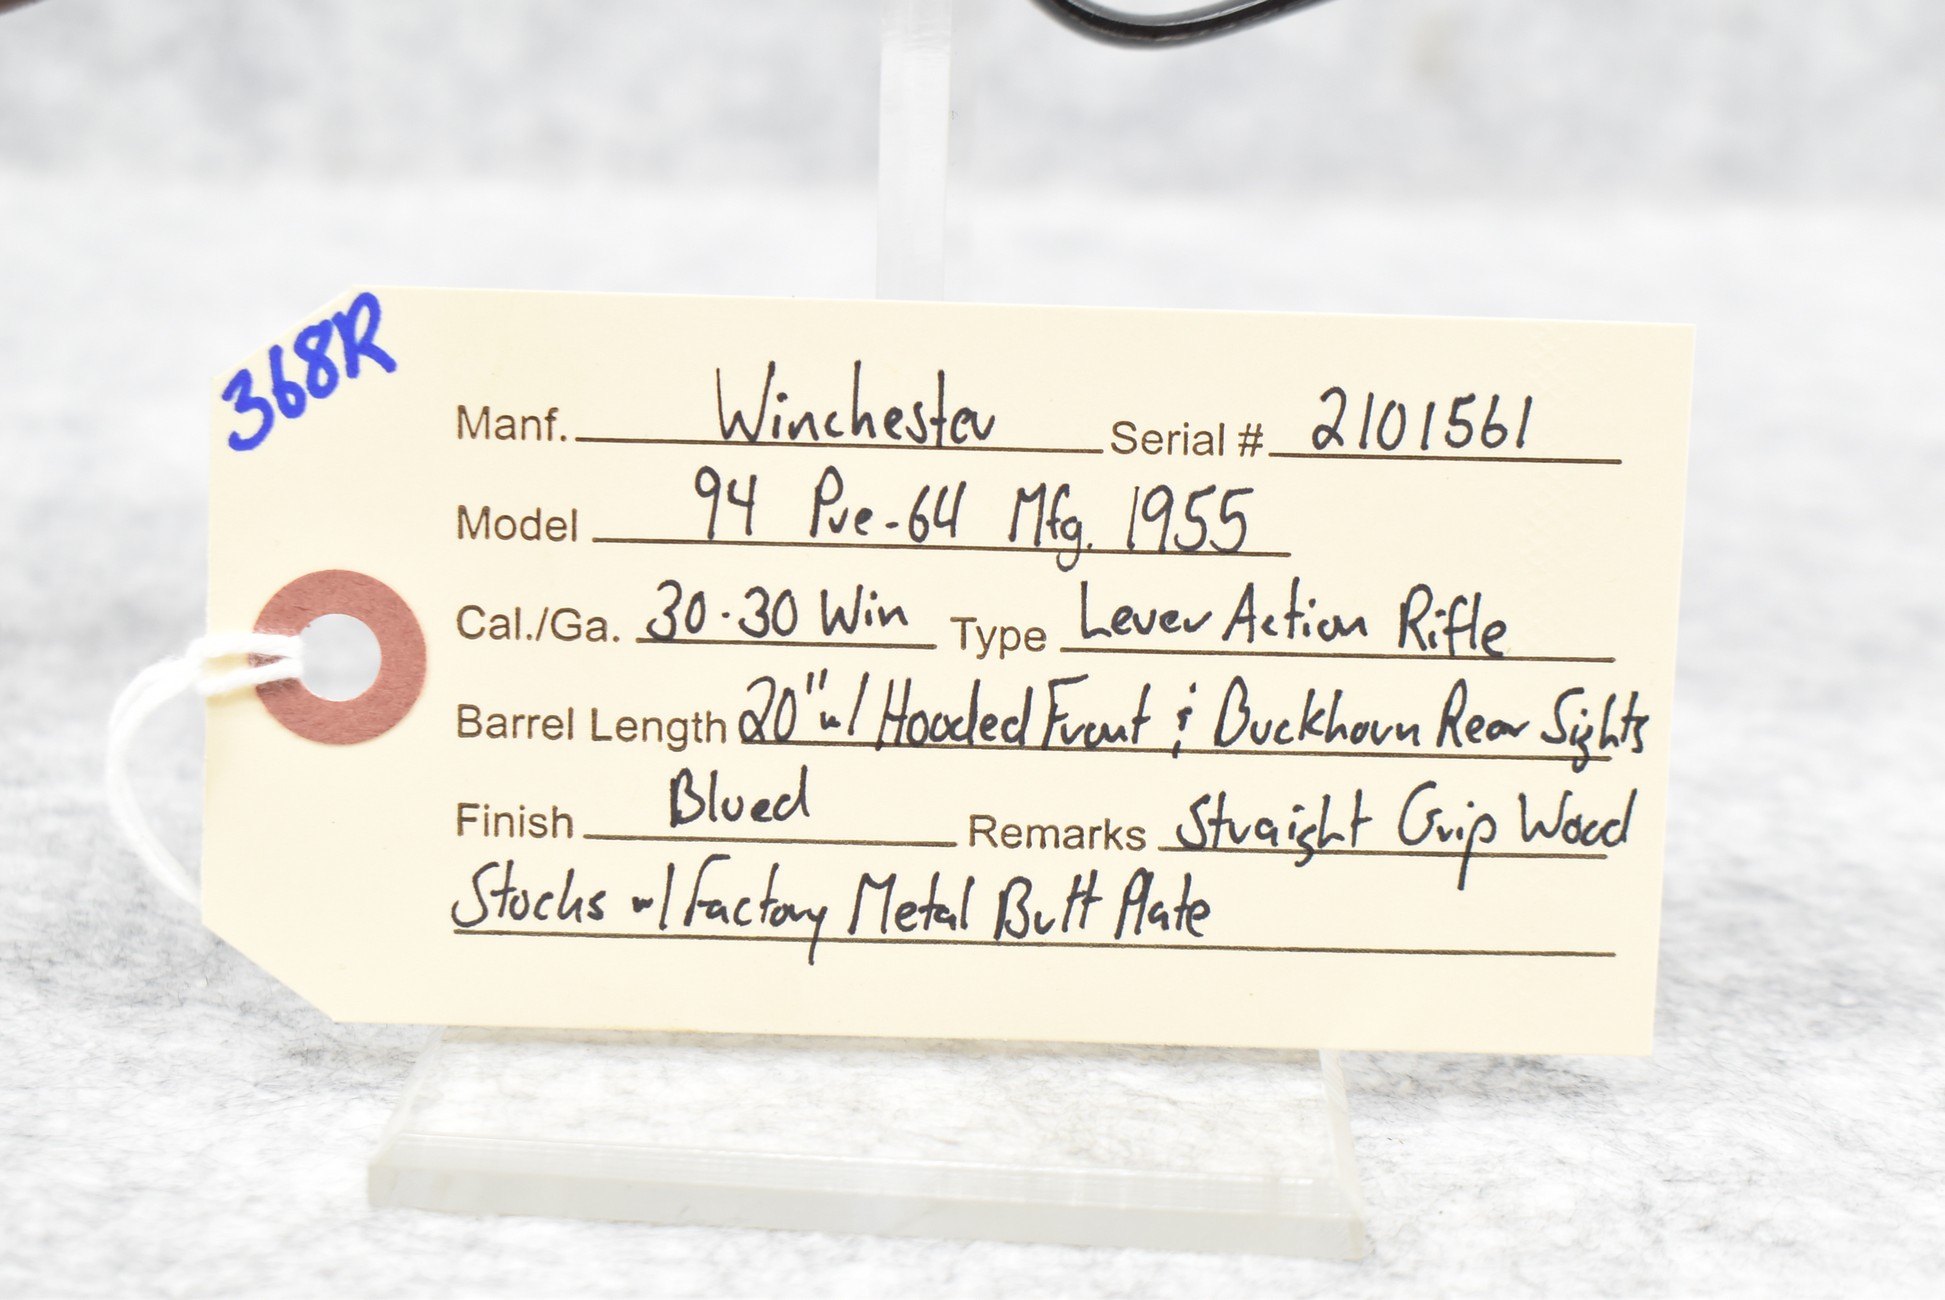 368R
Manf. Winchester Serial # 2101561
Model 94 Pre-64 Mfg. 1955
Cal./Ga. 30-30 Win Type Lever Action Rifle
Barrel Length 20" w/ Hooded Front & Buckhorn Rear Sights
Finish Blued Remarks Straight Grip Wood
Stocks w/ Factory Metal Butt Plate